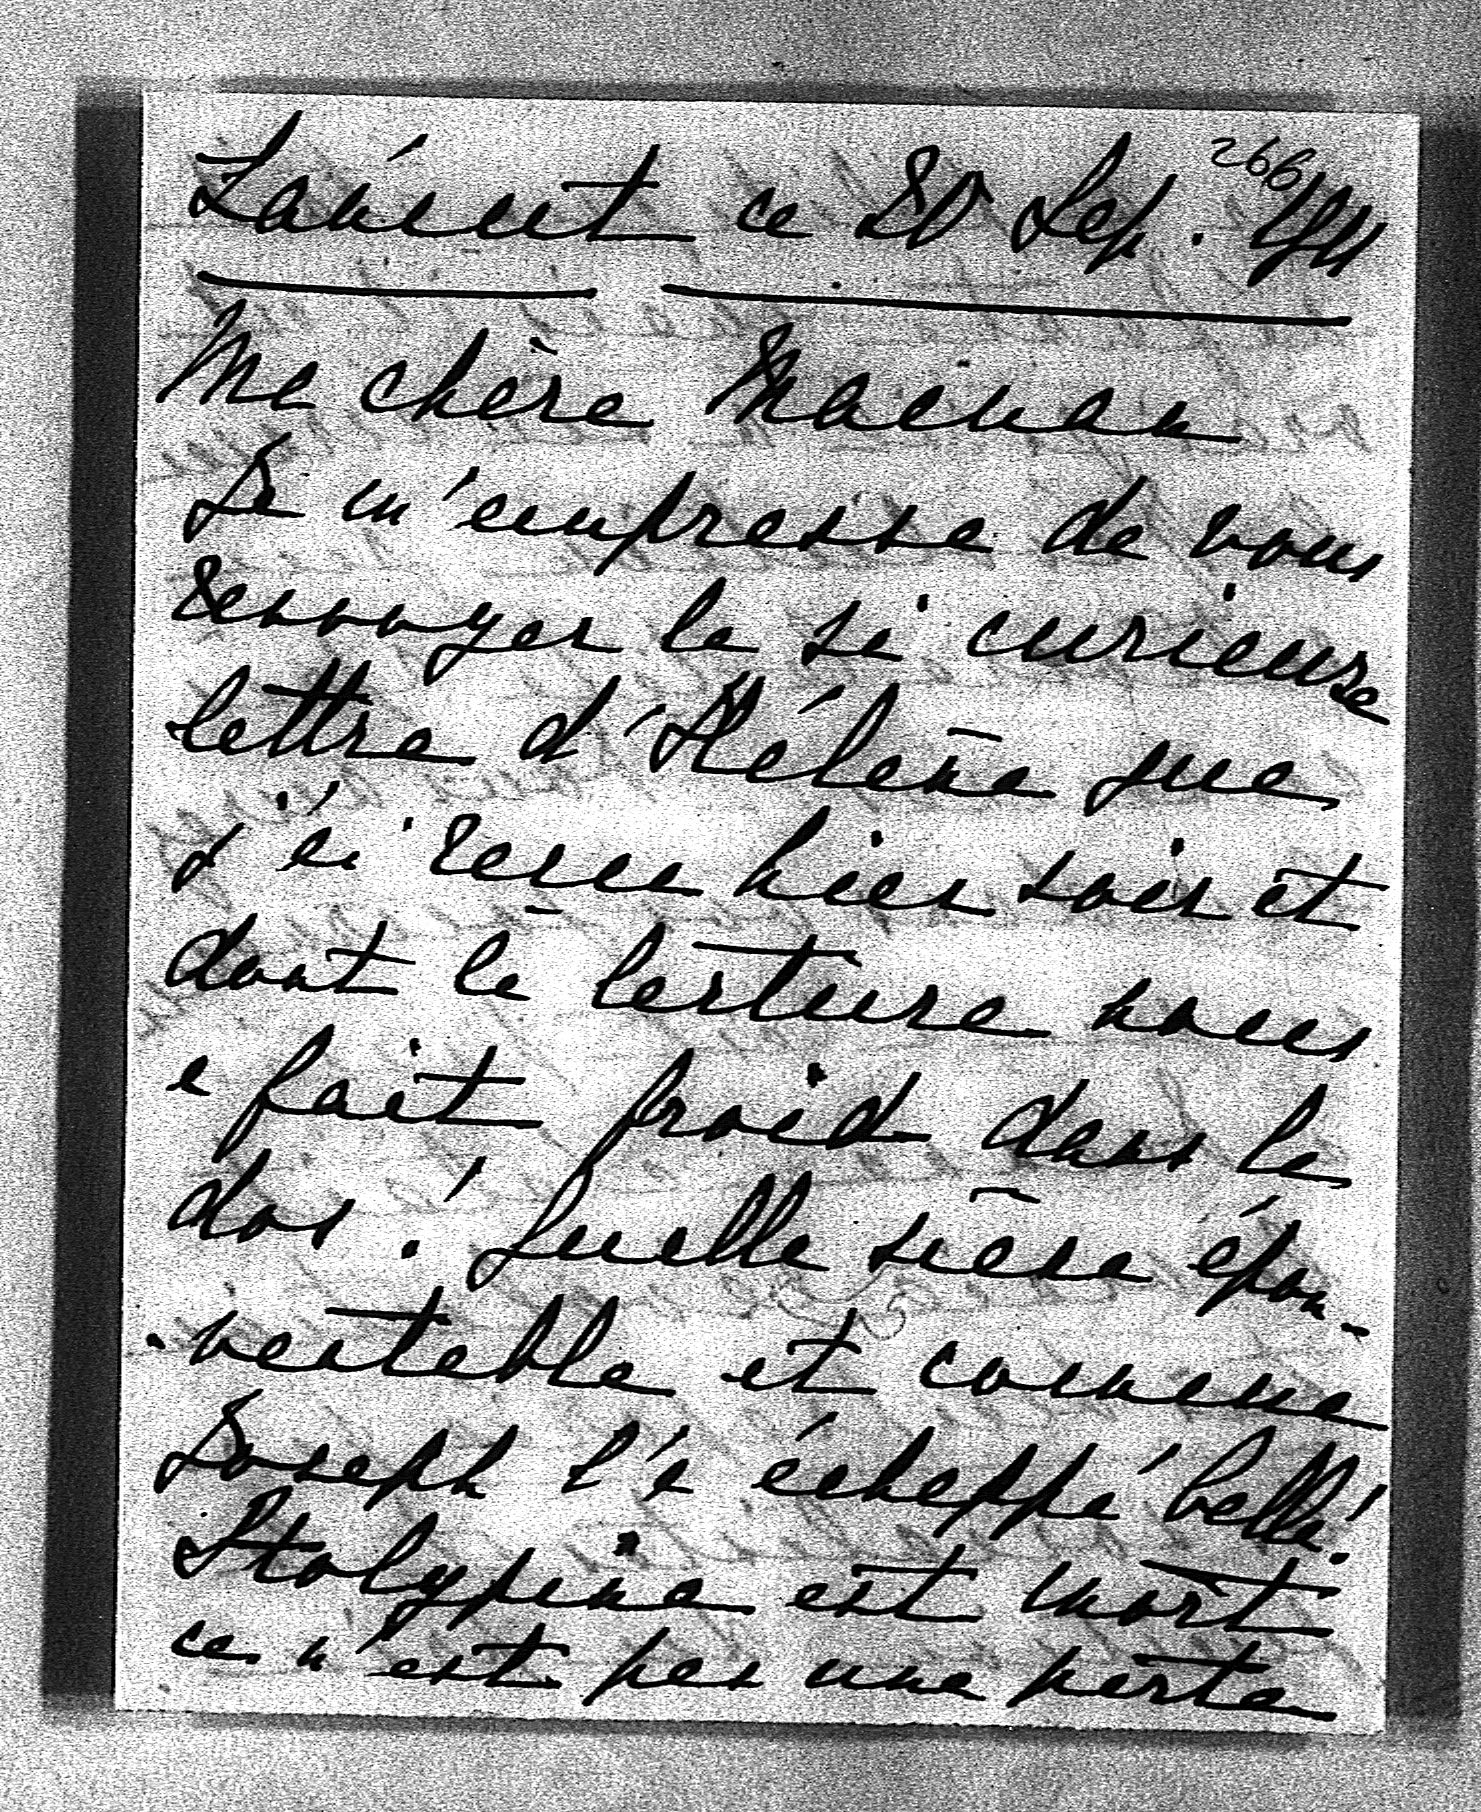 Lancut ce 20 Sep. 1911
266
Ma chère Maman
Je m'empresse de vous
renvoyer la si curieuse
lettre d'Hélène que
j'ai recue hier soir et
dont la lecture nous
a fait froid dans le
dos! Quelle scène épou-
-vantable et comme
Joseph l'a échappé belle!
Stolypine est mort
ce n'est pas une perte